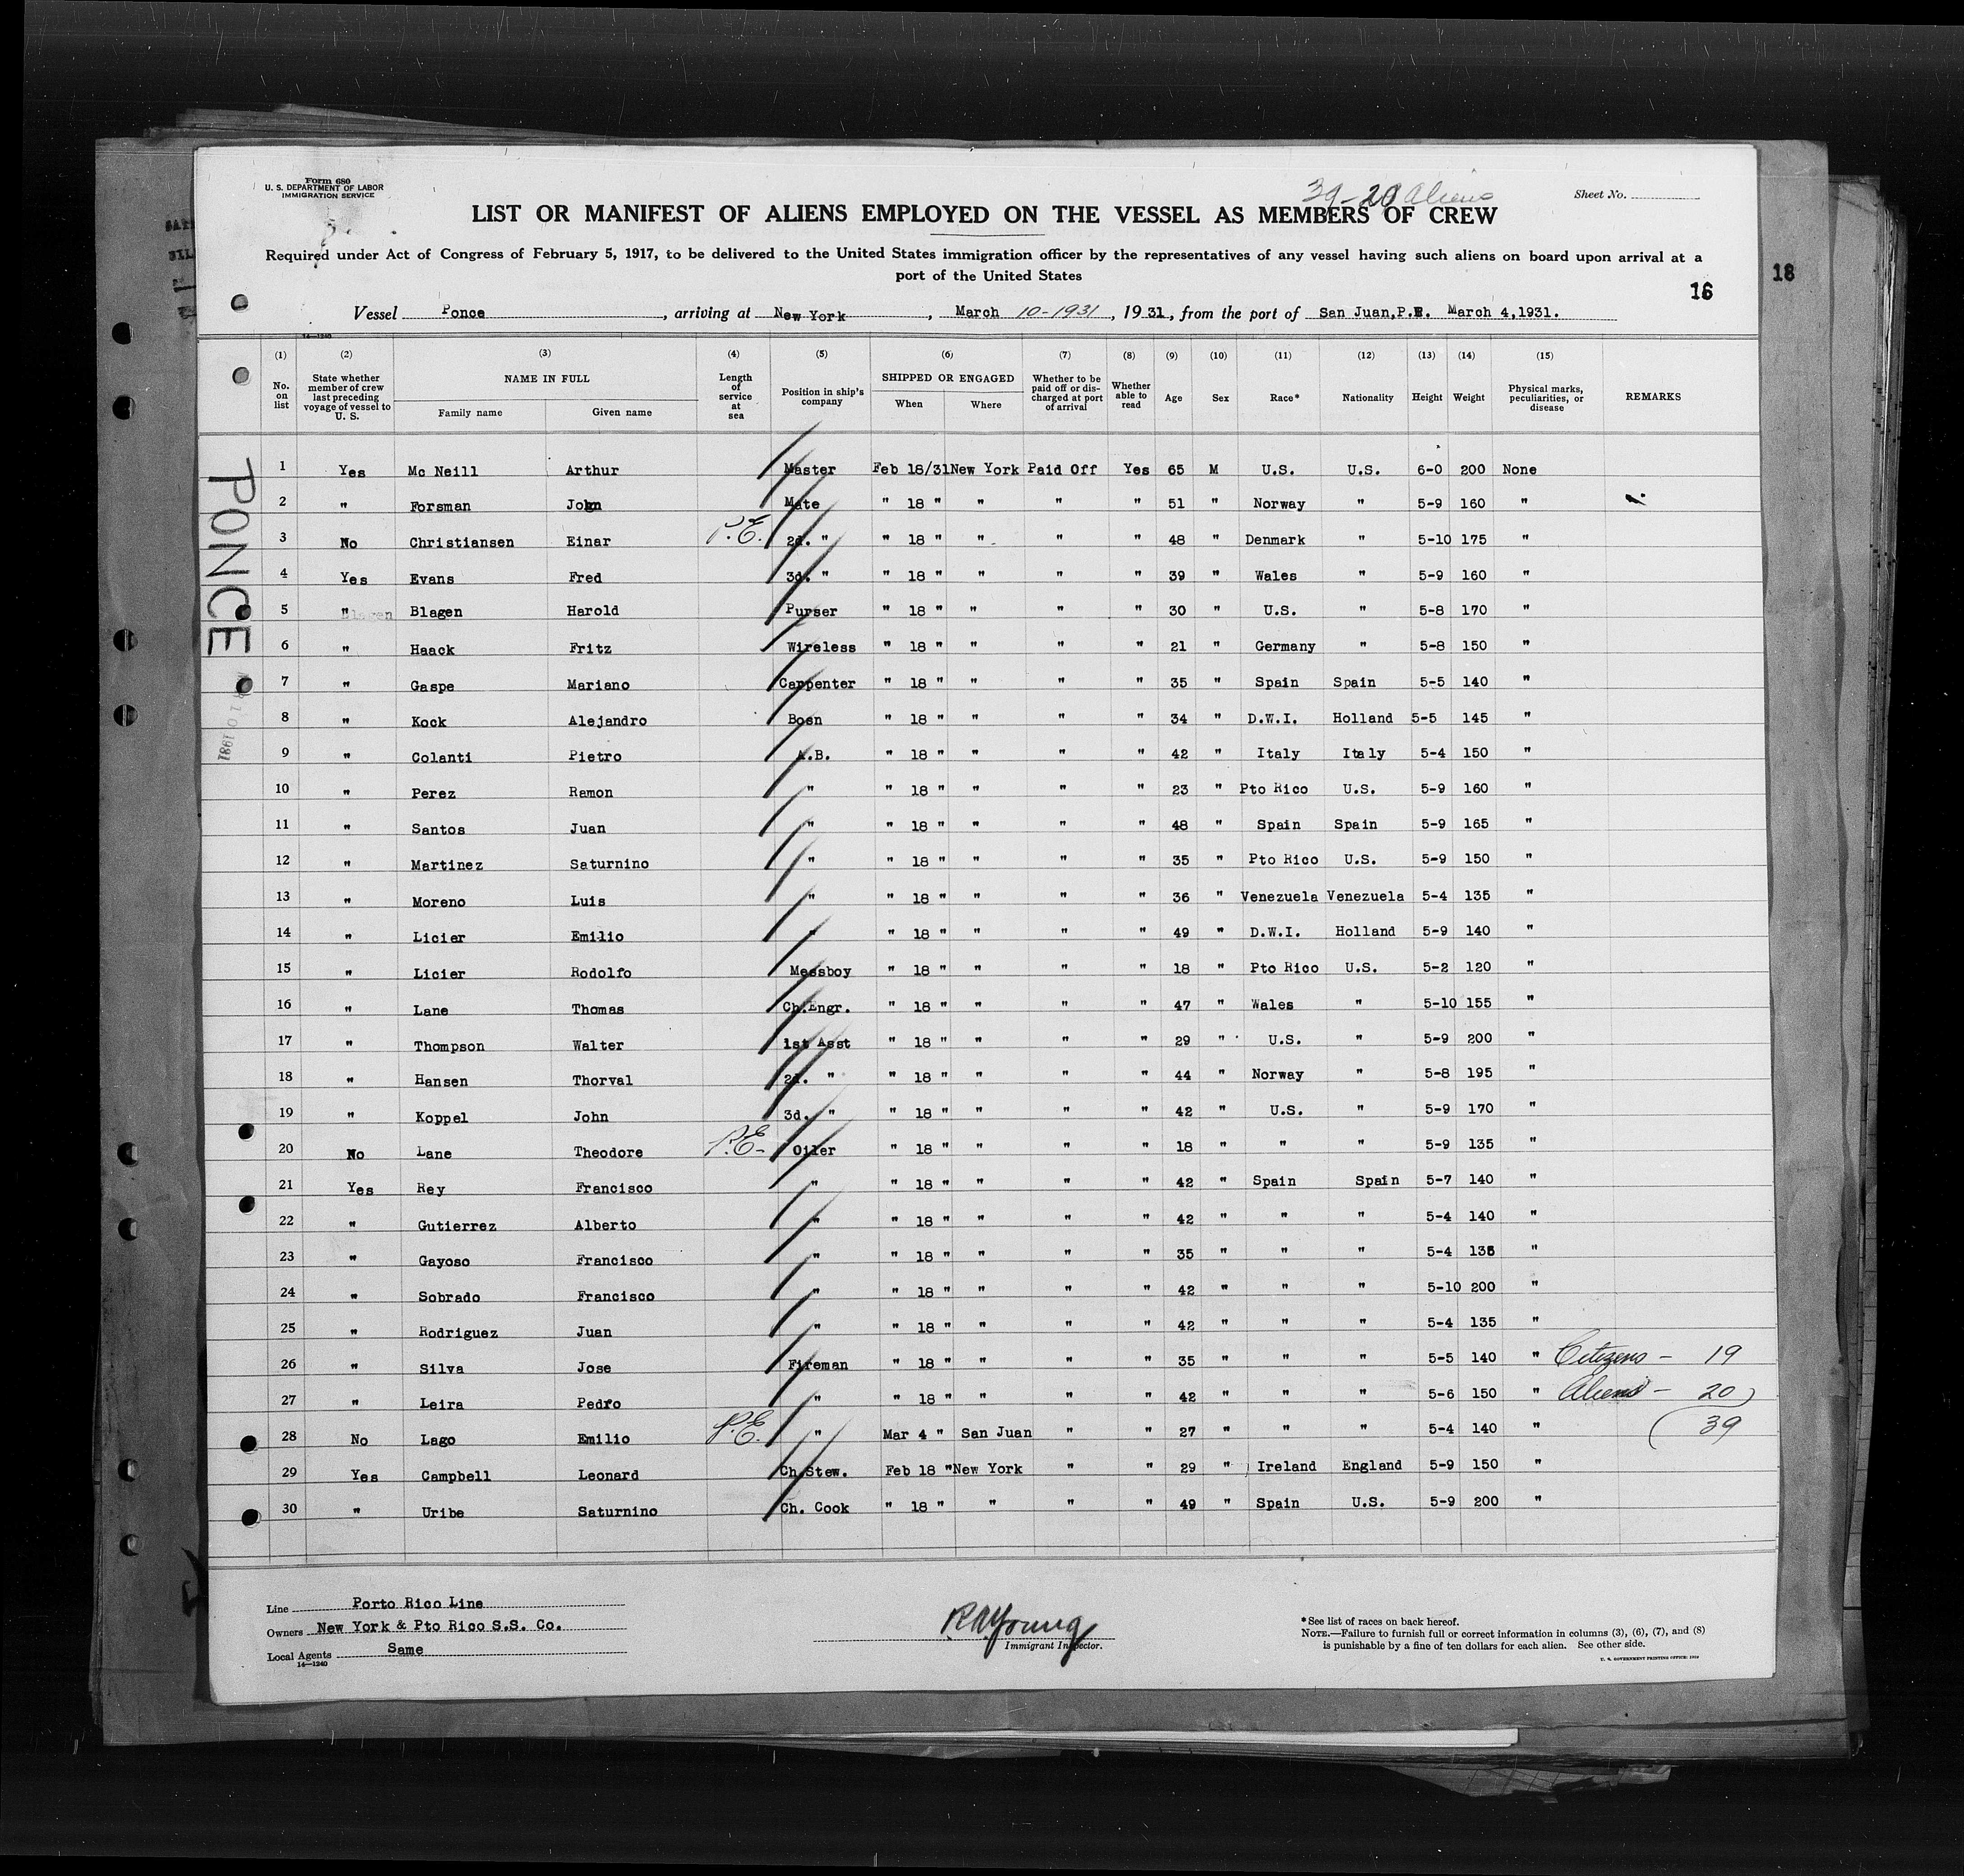 Form 680
U. S. DEPARTMENT OF LABOR
IMMIGRATION SERVICE
39-20 Aliens
Sheet No.
LIST OR MANIFEST OF ALIENS EMPLOYED ON THE VESSEL AS MEMBERS OF CREW
Required under Act of Congress of February 5, 1917, to be delivered to the United States immigration officer by the representatives of any vessel having such aliens on board upon arrival at a
port of the United States
18
16
Vessel Ponce, arriving at New York, March 10-1931, 1931, from the port of San Juan,P.R. March 4,1931.
14—1240
(1) (2) (3) (4) (5) (6) (7) (8) (9) (10) (11) (12) (13) (14) (15)
No. on list State whether member of crew last preceding voyage of vessel to U. S. NAME IN FULL Family name Given name Length of service at sea Position in ship's company SHIPPED OR ENGAGED When Where Whether to be paid off or discharged at port of arrival Whether able to read Age Sex Race* Nationality Height Weight Physical marks, peculiarities, or disease REMARKS
PONCE
1 Yes Mc Neill Arthur Master Feb 18/31 New York Paid Off Yes 65 M U.S. U.S. 6-0 200 None
2 " Forsman John Mate " 18 " " " " 51 " Norway " 5-9 160 "
3 No Christiansen Einar P.E. 2d. " " 18 " " " " 48 " Denmark " 5-10 175 "
4 Yes Evans Fred 3d. " " 18 " " " " 39 " Wales " 5-9 160 "
5 " Blagen Blagen Harold Purser " 18 " " " " 30 " U.S. " 5-8 170 "
6 " Haack Fritz Wireless " 18 " " " " 21 " Germany " 5-8 150 "
7 " Gaspe Mariano Carpenter " 18 " " " " 35 " Spain Spain 5-5 140 "
8 " Kock Alejandro Bosn " 18 " " " " 34 " D.W.I. Holland 5-5 145 "
9 " Colanti Pietro A.B. " 18 " " " " 42 " Italy Italy 5-4 150 "
10 " Perez Ramon " " 18 " " " " 23 " Pto Rico U.S. 5-9 160 "
11 " Santos Juan " " 18 " " " " 48 " Spain Spain 5-9 165 "
12 " Martinez Saturnino " " 18 " " " " 35 " Pto Rico U.S. 5-9 150 "
13 " Moreno Luis " " 18 " " " " 36 " Venezuela Venezuela 5-4 135 "
14 " Licier Emilio " " 18 " " " " 49 " D.W.I. Holland 5-9 140 "
15 " Licier Rodolfo Messboy " 18 " " " " 18 " Pto Rico U.S. 5-2 120 "
16 " Lane Thomas Ch.Engr. " 18 " " " " 47 " Wales " 5-10 155 "
17 " Thompson Walter 1st Asst " 18 " " " " 29 " U.S. " 5-9 200 "
18 " Hansen Thorval 2d. " " 18 " " " " 44 " Norway " 5-8 195 "
19 " Koppel John 3d. " " 18 " " " " 42 " U.S. " 5-9 170 "
20 No Lane Theodore P.E- Oiler " 18 " " " " 18 " " " 5-9 135 "
21 Yes Rey Francisco " " 18 " " " " 42 " Spain Spain 5-7 140 "
22 " Gutierrez Alberto " " 18 " " " " 42 " " " 5-4 140 "
23 " Gayoso Francisco " " 18 " " " " 35 " " " 5-4 135 "
24 " Sobrado Francisco " " 18 " " " " 42 " " " 5-10 200 "
25 " Rodriguez Juan " " 18 " " " " 42 " " " 5-4 135 "
26 " Silva Jose Fireman " 18 " " " " 35 " " " 5-5 140 " Citizens - 19
27 " Leira Pedro " " 18 " " " " 42 " " " 5-6 150 " Aliens - 20
28 No Lago Emilio P.E. " Mar 4 " San Juan " " 27 " " " 5-4 140 " 39
29 Yes Campbell Leonard Ch.Stew. Feb 18 " New York " " 29 " Ireland England 5-9 150 "
30 " Uribe Saturnino Ch. Cook " 18 " " " " 49 " Spain U.S. 5-9 200 "
Line Porto Rico Line
Owners New York & Pto Rico S.S. Co.
Local Agents Same
14—1240
R A Young
Immigrant Inspector.
*See list of races on back hereof.
NOTE.—Failure to furnish full or correct information in columns (3), (6), (7), and (8)
is punishable by a fine of ten dollars for each alien. See other side.